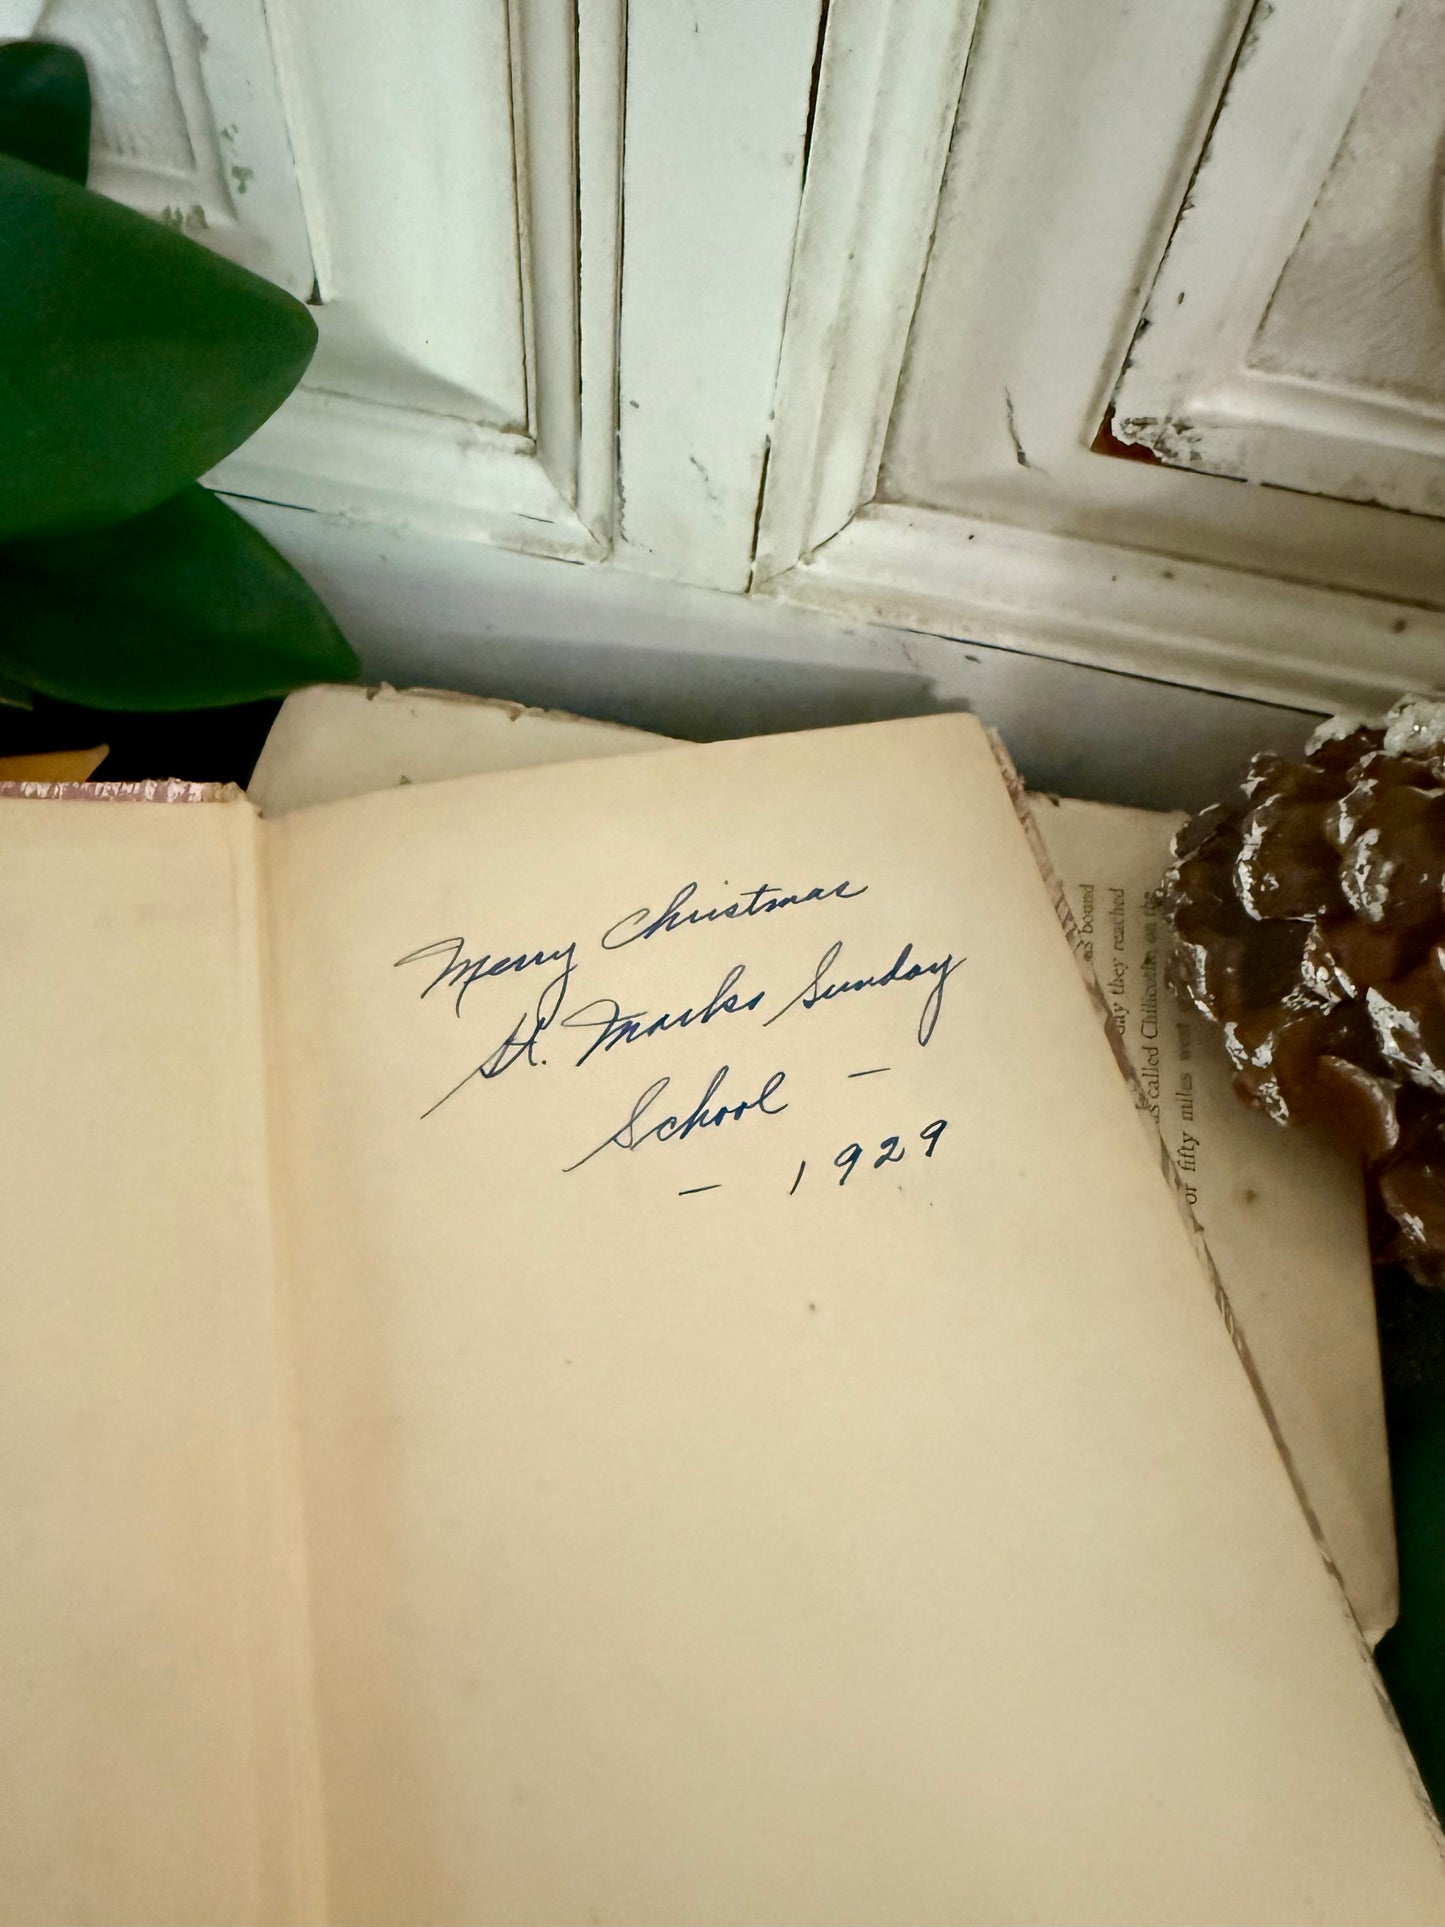 Merry Christmas
St. Marks Sunday
School –
– 1929
as bound
day they reached
as called Chillicothe on the
or fifty miles west